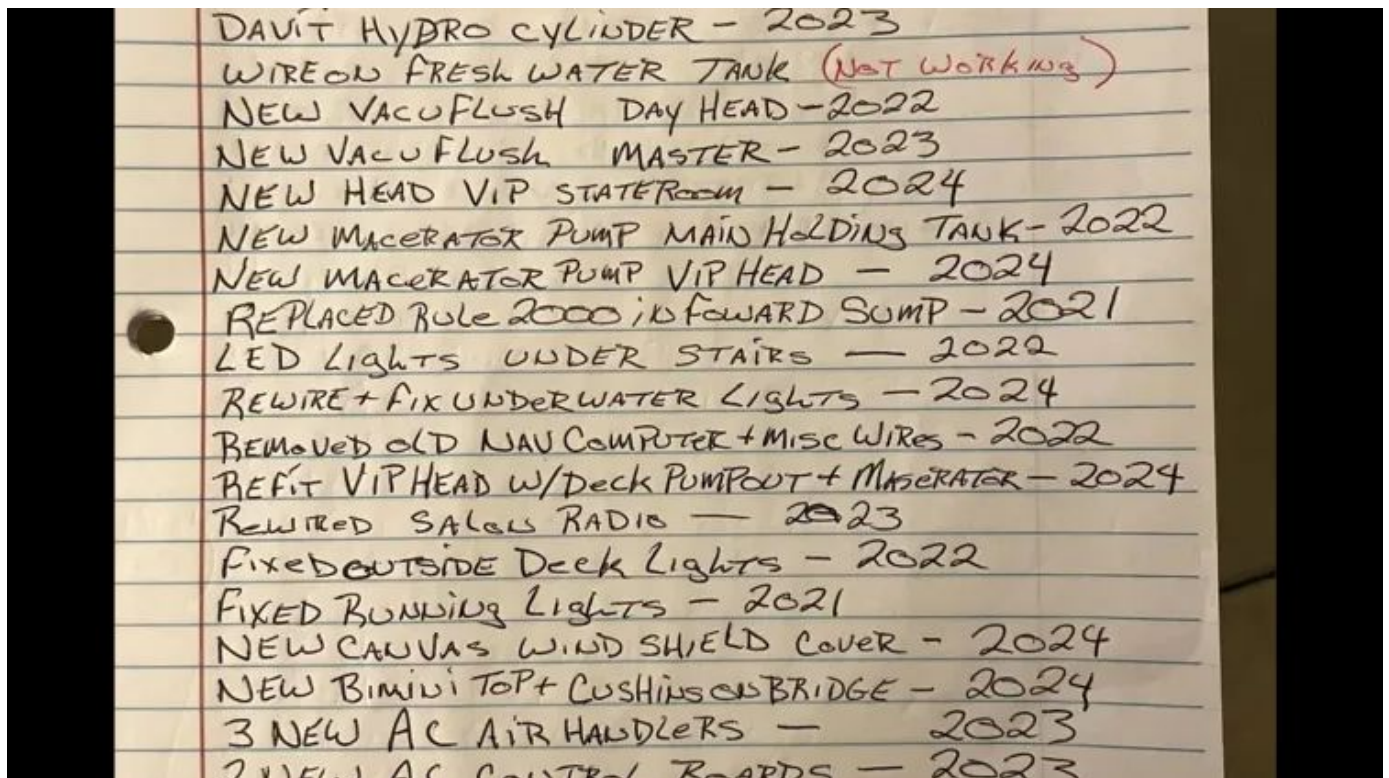 DAVIT HYDRO CYLINDER - 2023
WIRE ON FRESH WATER TANK (NOT WORKING)
NEW VACUFLUSH DAY HEAD - 2022
NEW VACUFLUSH MASTER - 2023
NEW HEAD VIP STATEROOM - 2024
NEW MACERATOR PUMP MAIN HOLDING TANK - 2022
NEW MACERATOR PUMP VIP HEAD - 2024
REPLACED RULE 2000 IN FOWARD SUMP - 2021
LED LIGHTS UNDER STAIRS - 2022
REWIRE + FIX UNDERWATER LIGHTS - 2024
REMOVED OLD NAV COMPUTER + MISC WIRES - 2022
REFIT VIP HEAD W/DECK PUMPOUT + MASERATOR - 2024
REWIRED SALON RADIO - 2023
FIXED OUTSIDE DECK LIGHTS - 2022
FIXED RUNNING LIGHTS - 2021
NEW CANVAS WIND SHIELD COVER - 2024
NEW BIMINI TOP + CUSHINS ON BRIDGE - 2024
3 NEW AC AIR HANDLERS - 2023
2 NEW AC CONTROL BOARDS - 2023